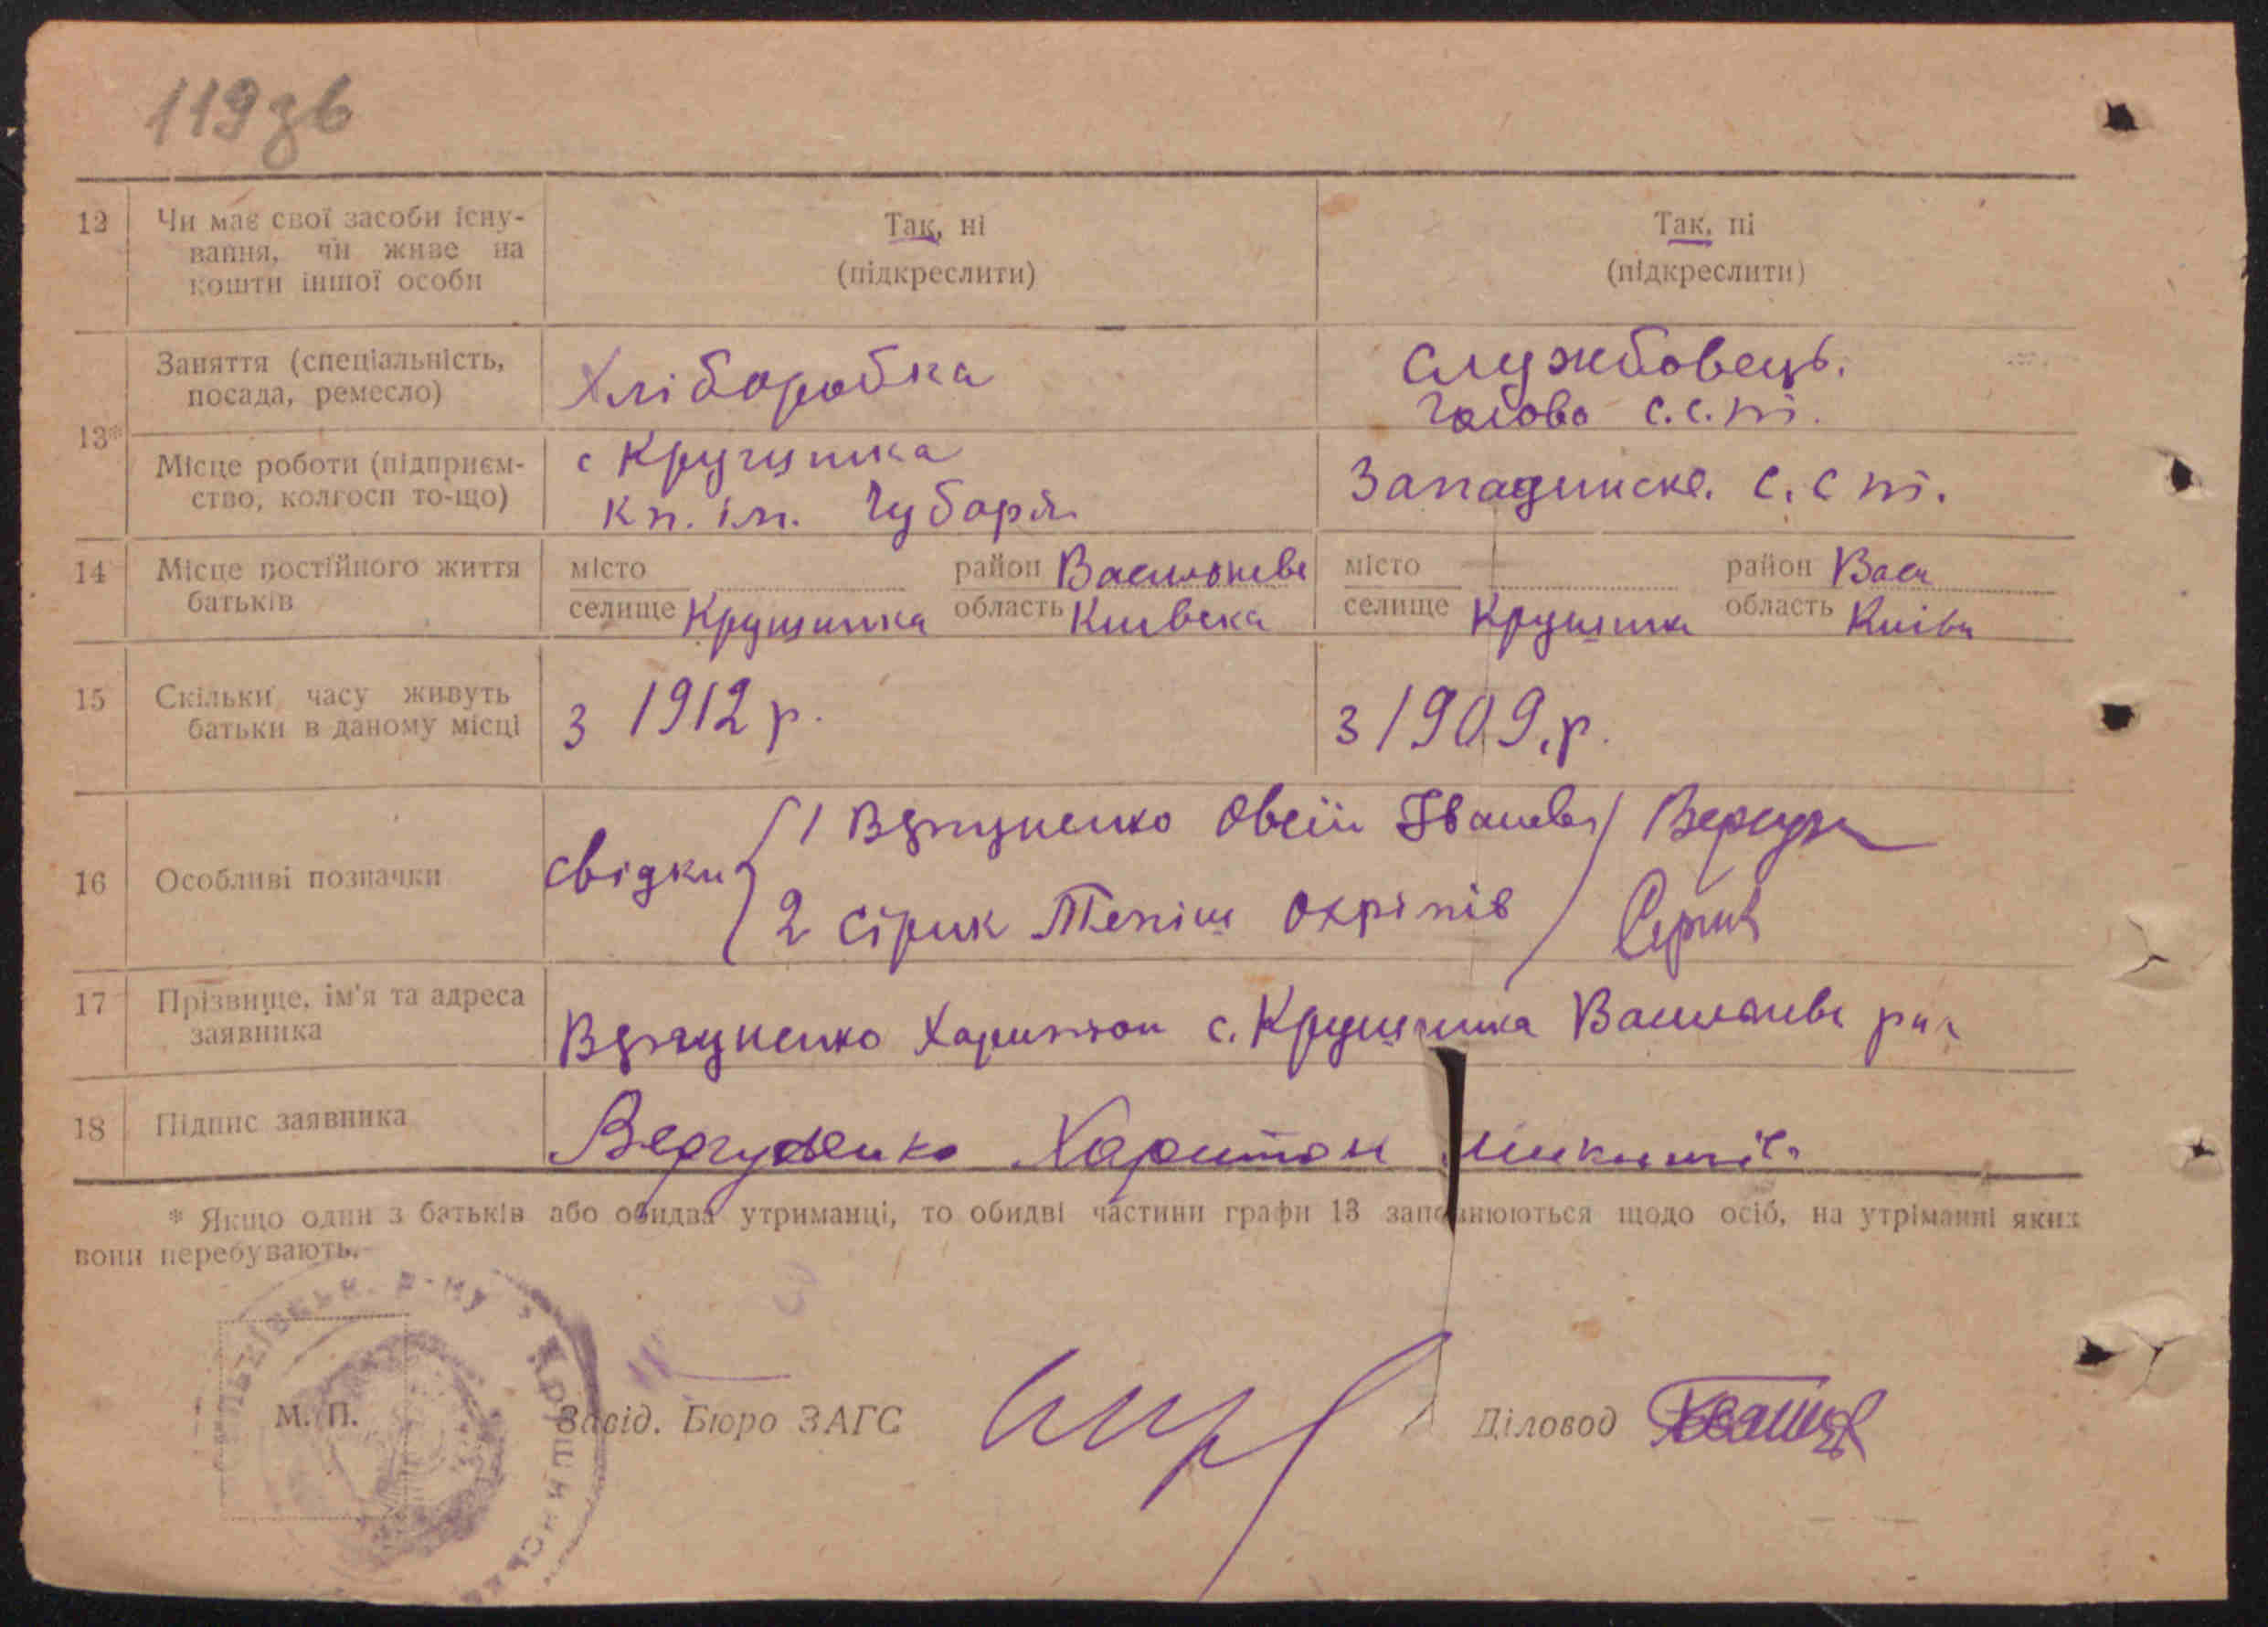 119 зв
12 Чи має свої засоби існу- Так, ні Так, ні
вання, чи живе на (підкреслити) (підкреслити)
кошти іншої особи
Заняття (спеціальність, Хліборобка Службовець.
посада, ремесло) Голова с.с.т.
13*
Місце роботи (підприєм- с Крущинка Западинське. С.С т.
ство, колгосп то-що) кп. ім. Чубаря
14 Місце постійного життя місто район Васильківс місто район Васи
батьків селище Крущинка область Київська селище Крущинка область Київ
15 Скільки часу живуть з 1912 р. з 1909.р.
батьки в даному місці
16 Особливі позначки свідки 1 Вергуненко Овсій Іванов
2 Сірик Охрімів Сірик
17 Прізвище, ім'я та адреса
заявника Вергуненко Харитон с. Крущинка Васильківс рай
18 Підпис заявника Вергуненко Харитон Микит
* Якщо один з батьків або обидва утриманці, то обидві частини графи 13 заповнюються щодо осіб, на утріманні яких
вони перебувають.
М. П. Завід. Бюро ЗАГС Діловод
р-ну